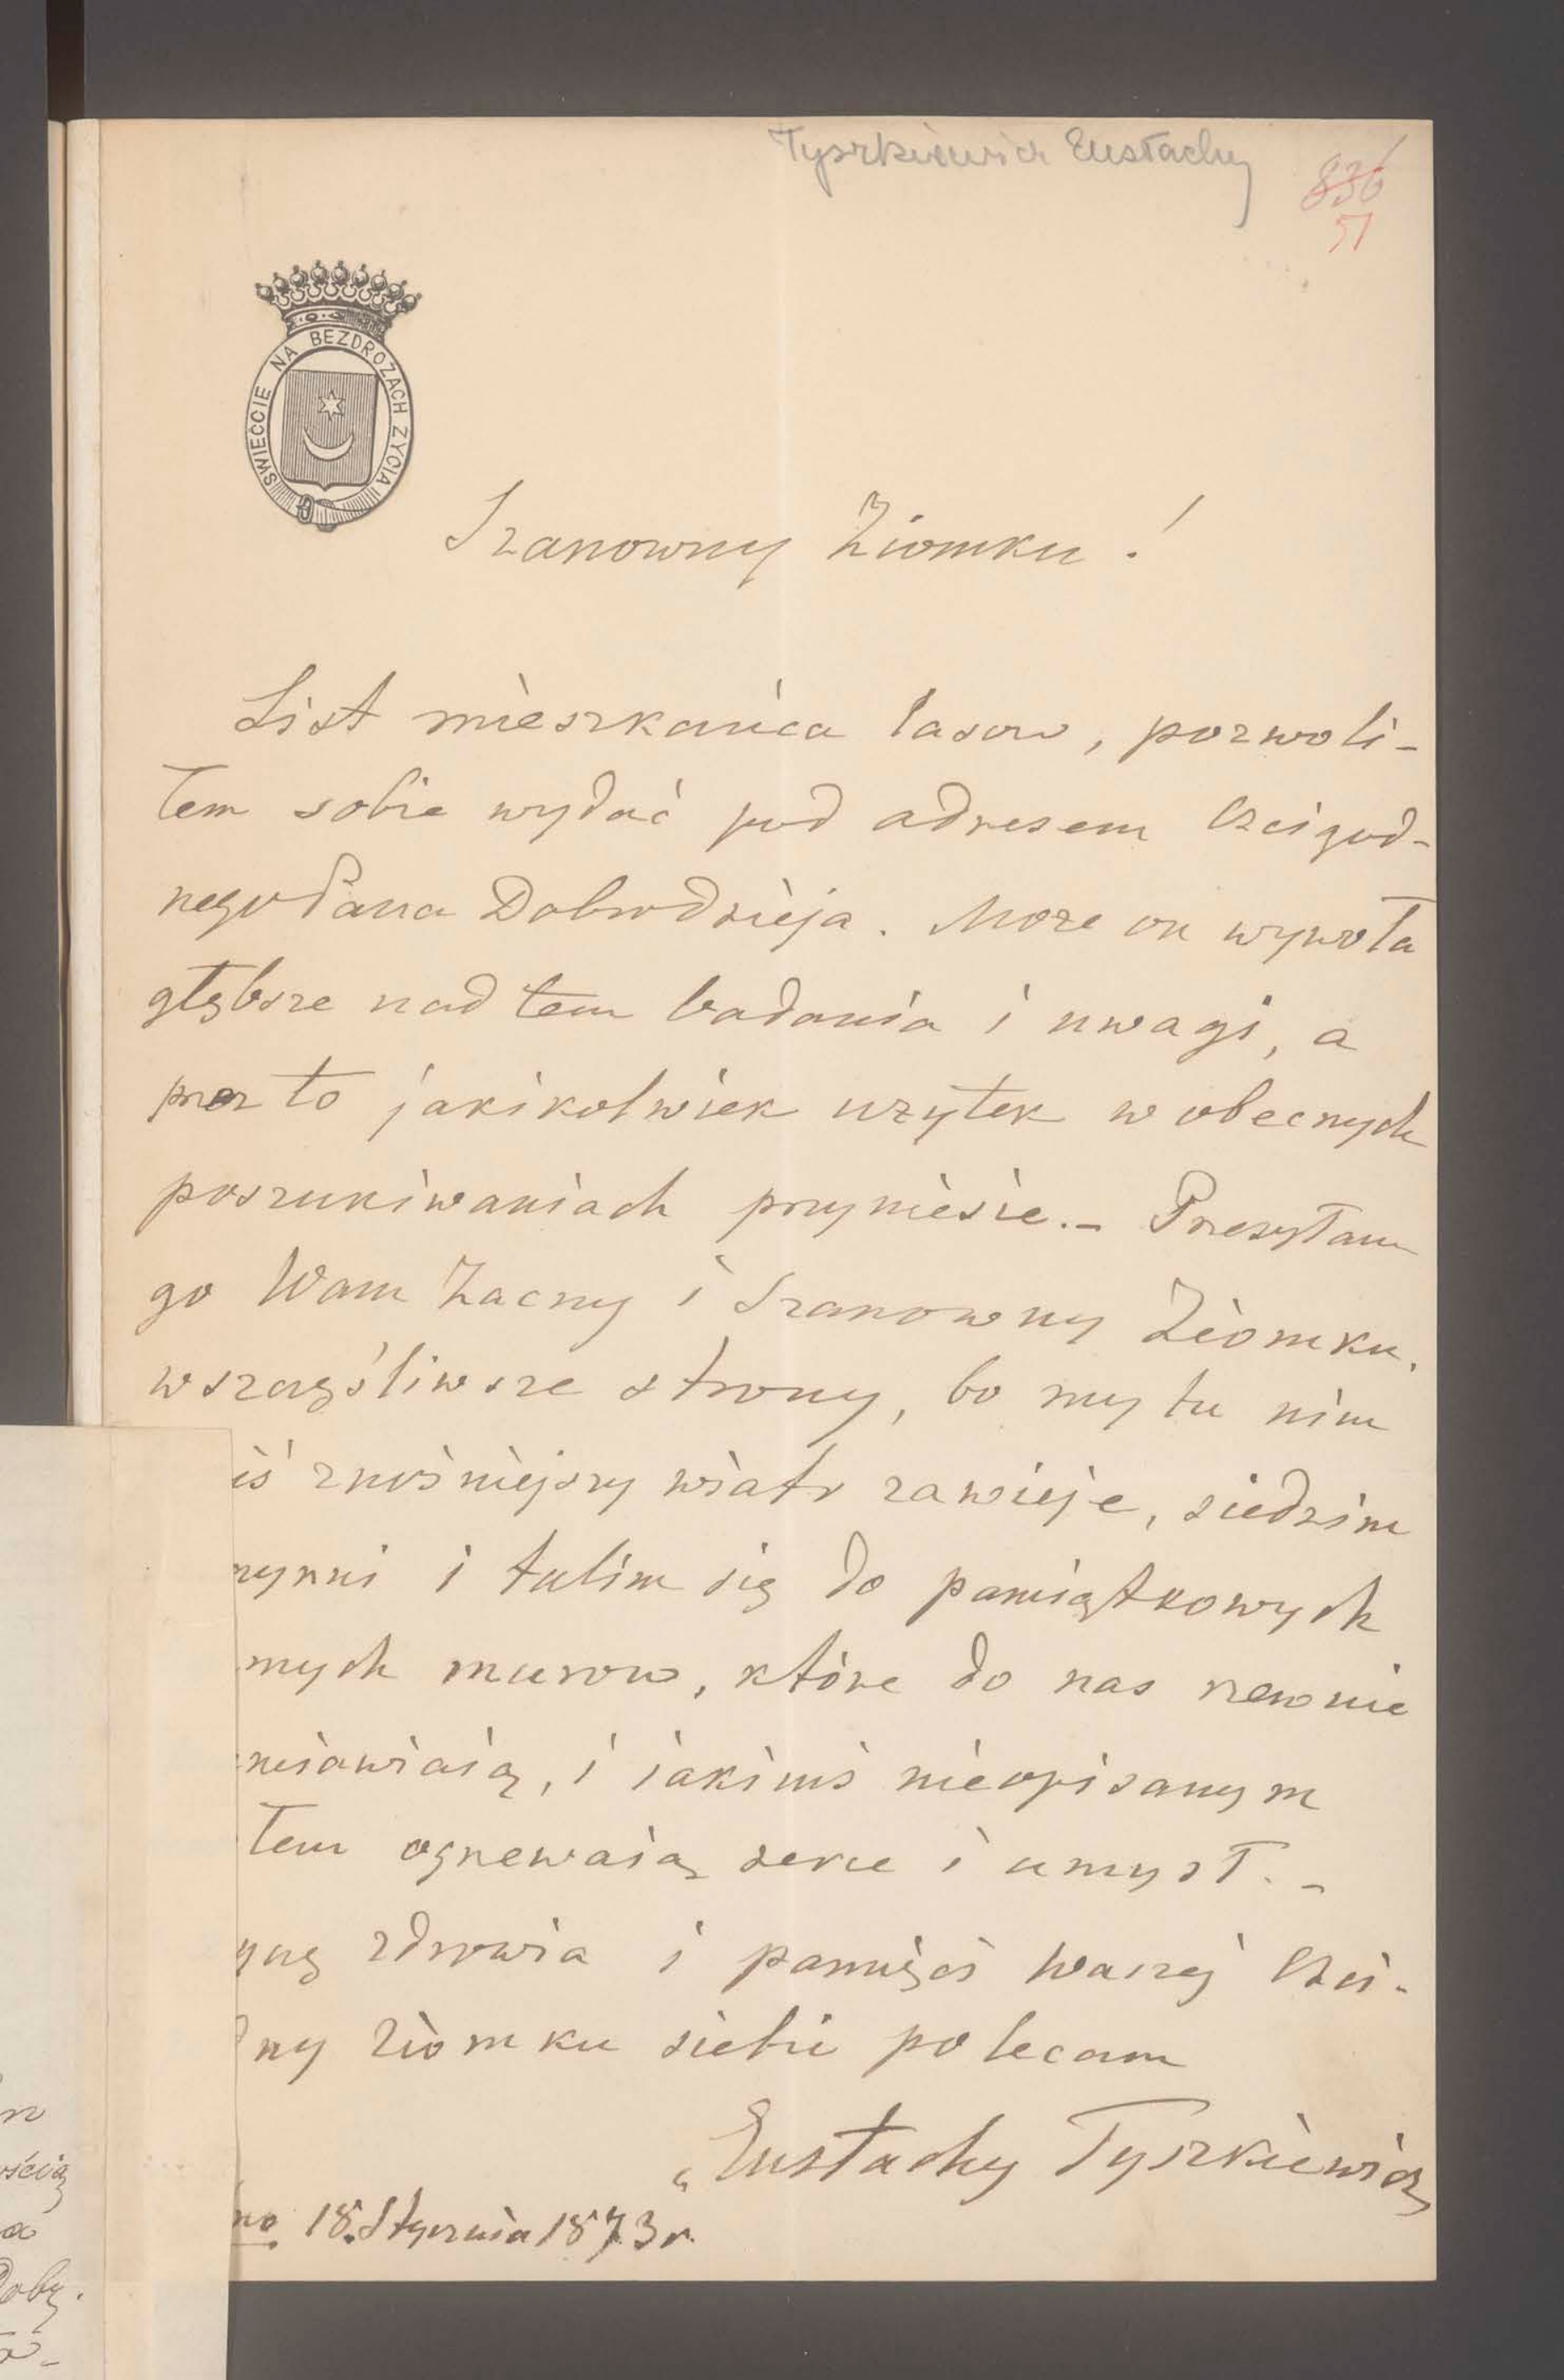 Tyszkiewicz Eustachy
836
51
SWIEĆCIE NA BEZDROŻACH ŻYCIA
Szanowny Ziomku!
List mieszkańca lasow, pozwoli-
łem sobie wydać pod adresem Czcigod-
nego Pana Dobrodzieja. Może on wywoła
głębsze nad tem badania i uwagi, a
przez to jakikolwiek użytek w obecnych
poszukiwaniach przyniesie.- Przesyłam
go Wam Zacny i Szanowny Ziomku.
w szczęśliwsze strony, bo my tu nim
iś znośniejszy wiatr zawieje, siedzim
i tulim się do pamiątkowych
mych murow, które do nas rzewnie
mawiaią, i iakimś nieopisanym
łem ogrzewaią serce i umysł.-
zdrowia i pamięci waszej Czci-
ny Ziomku siebie polecam
Eustachy Tyszkiewicz
no 18. Stycznia 1873 r.
ścią
a
Doby.